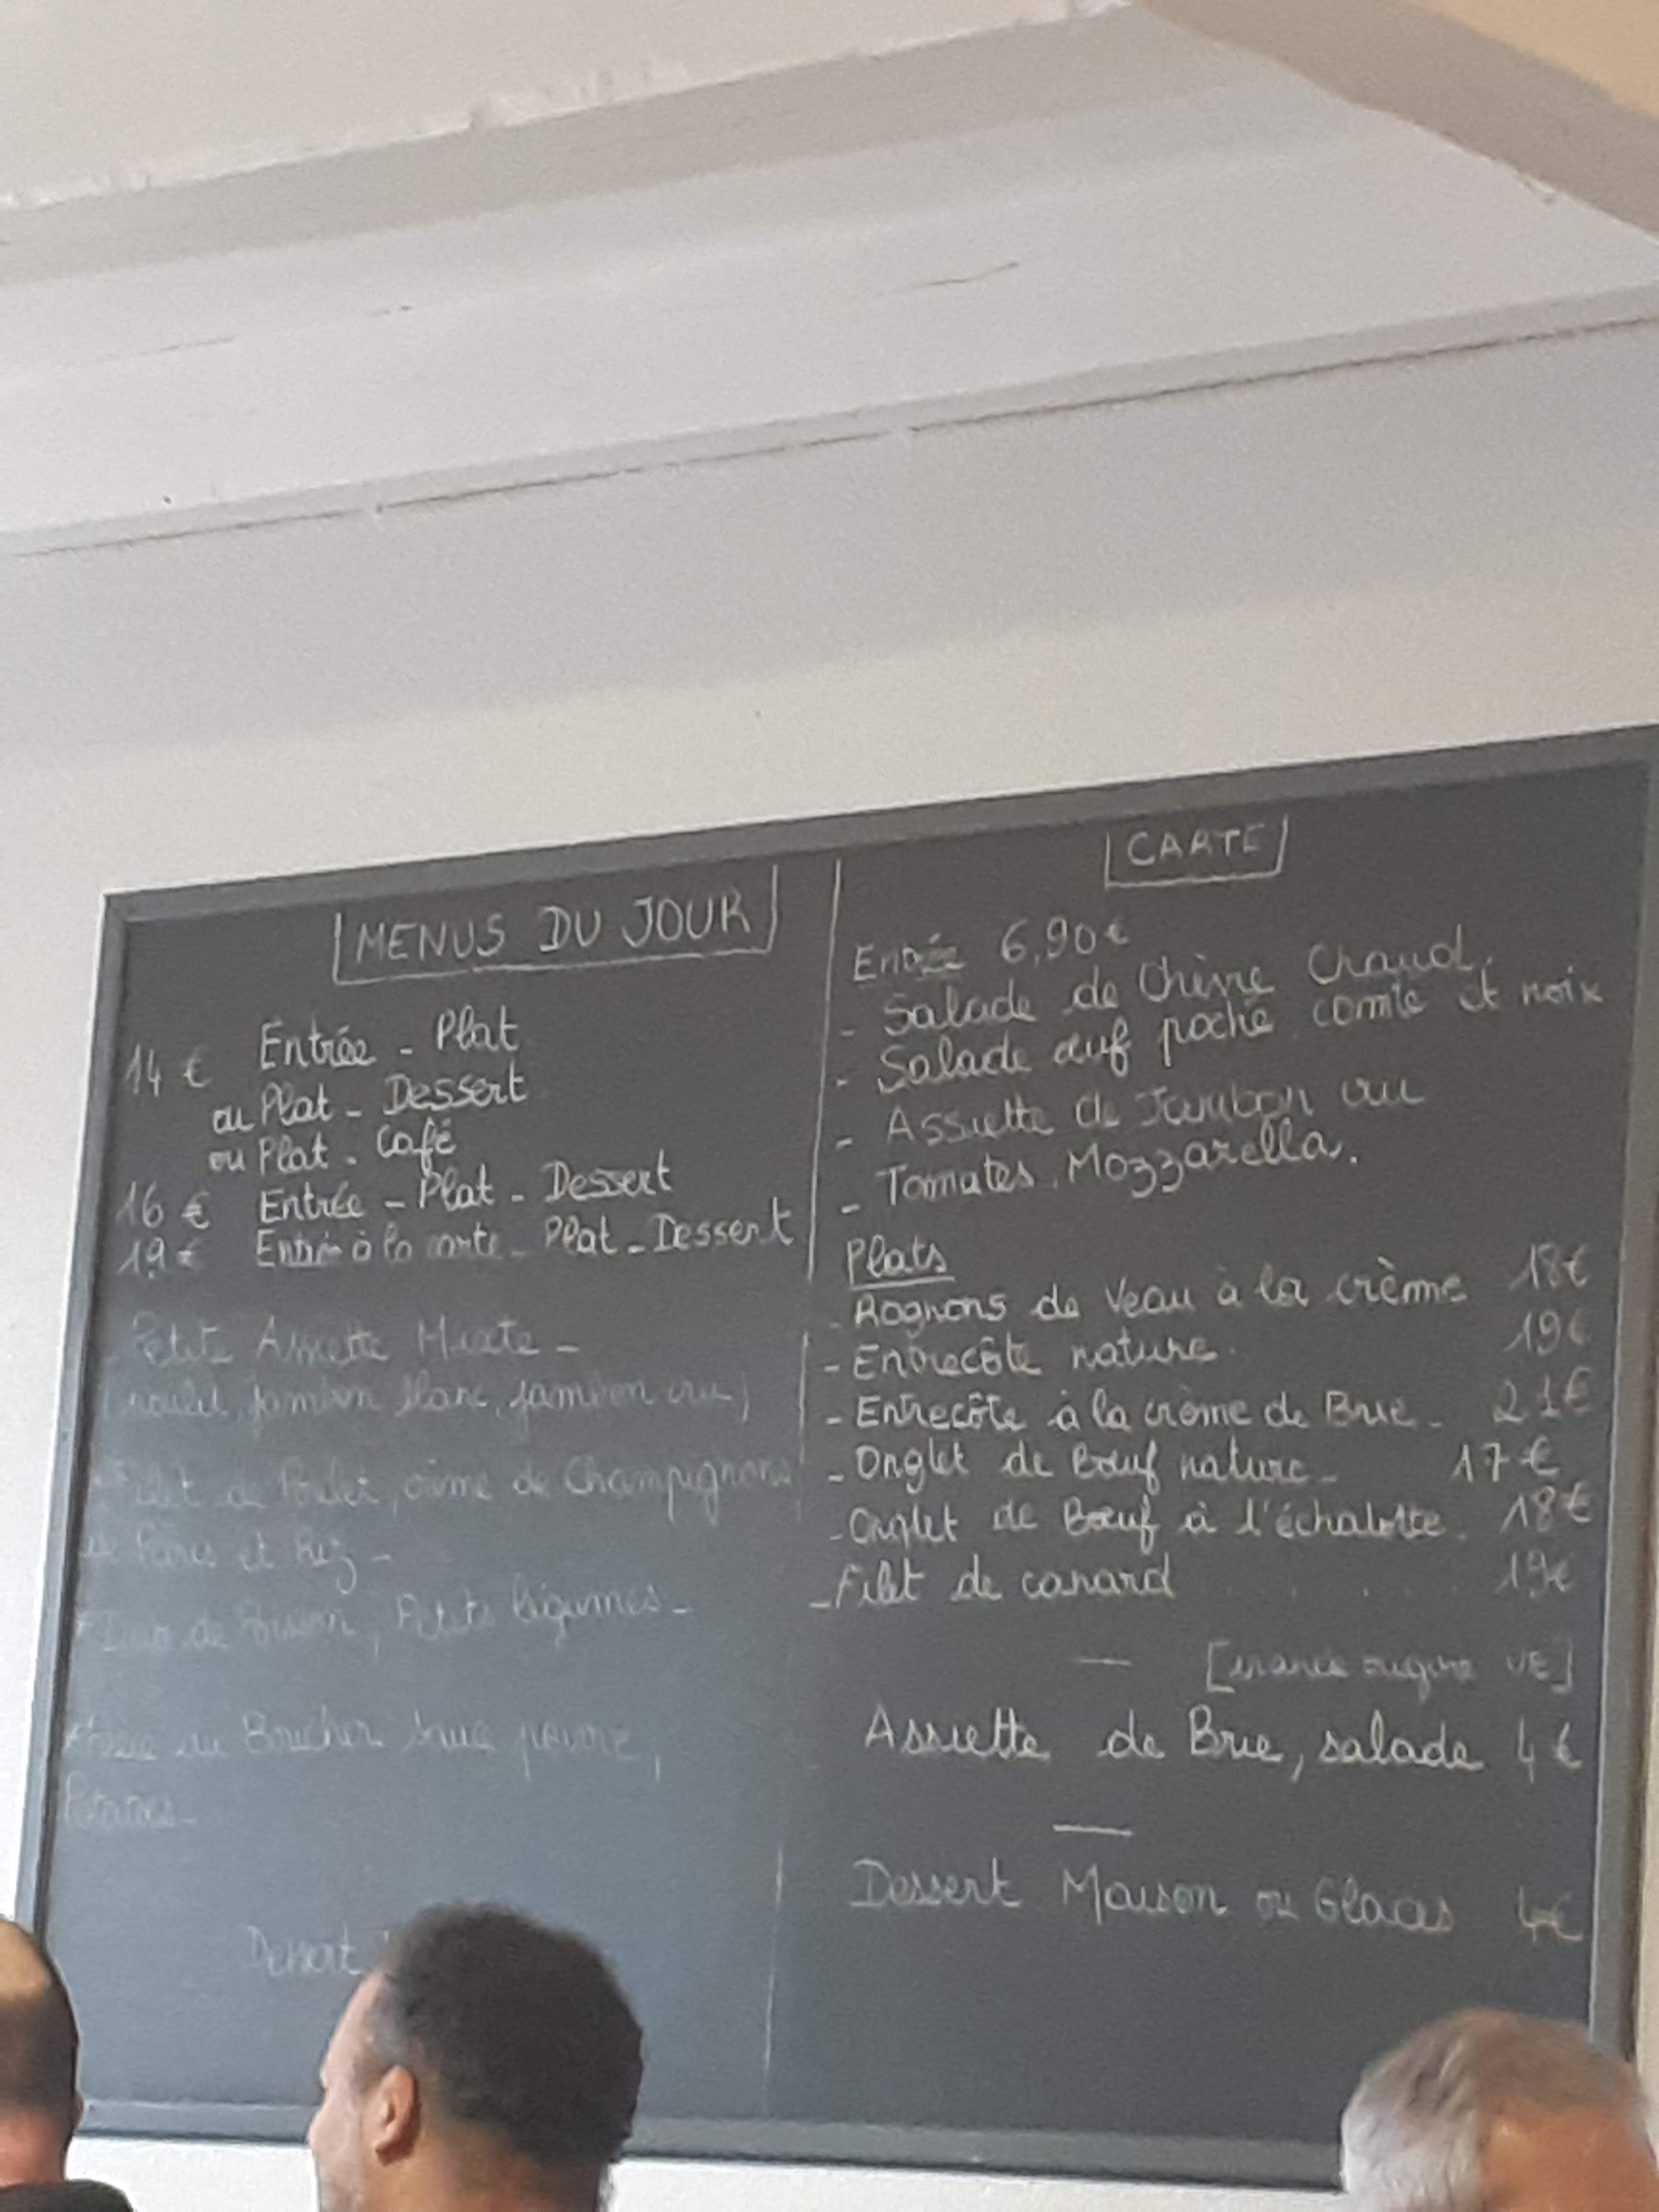 MENUS DU JOUR
14 € Entrée - Plat
ou Plat - Dessert
ou Plat - Café
16 € Entrée - Plat - Dessert
19 € Entrée à la carte - Plat - Dessert
Petite Assiette Mixte -
(roulé, jambon blanc, jambon cru)
Filet de Poulet, crème de Champignons
de Paris et Riz -
de Poisson, Petits légumes -
du Boucher sauce poivre,
Dessert
CARTE
Entrée 6,90 €
- Salade de Chèvre Chaud.
- Salade œuf poché comté et noix
- Assiette de Jambon cru
- Tomates, Mozzarella.
Plats
- Rognons de Veau à la crème 18€
- Entrecôte nature. 19€
- Entrecôte à la crème de Brie - 21€
- Onglet de Bœuf nature - 17€
- Onglet de Bœuf à l'échalotte. 18€
- Filet de canard .... 19€
— [viande origine UE]
Assiette de Brie, salade 4€
—
Dessert Maison ou Glaces 4€